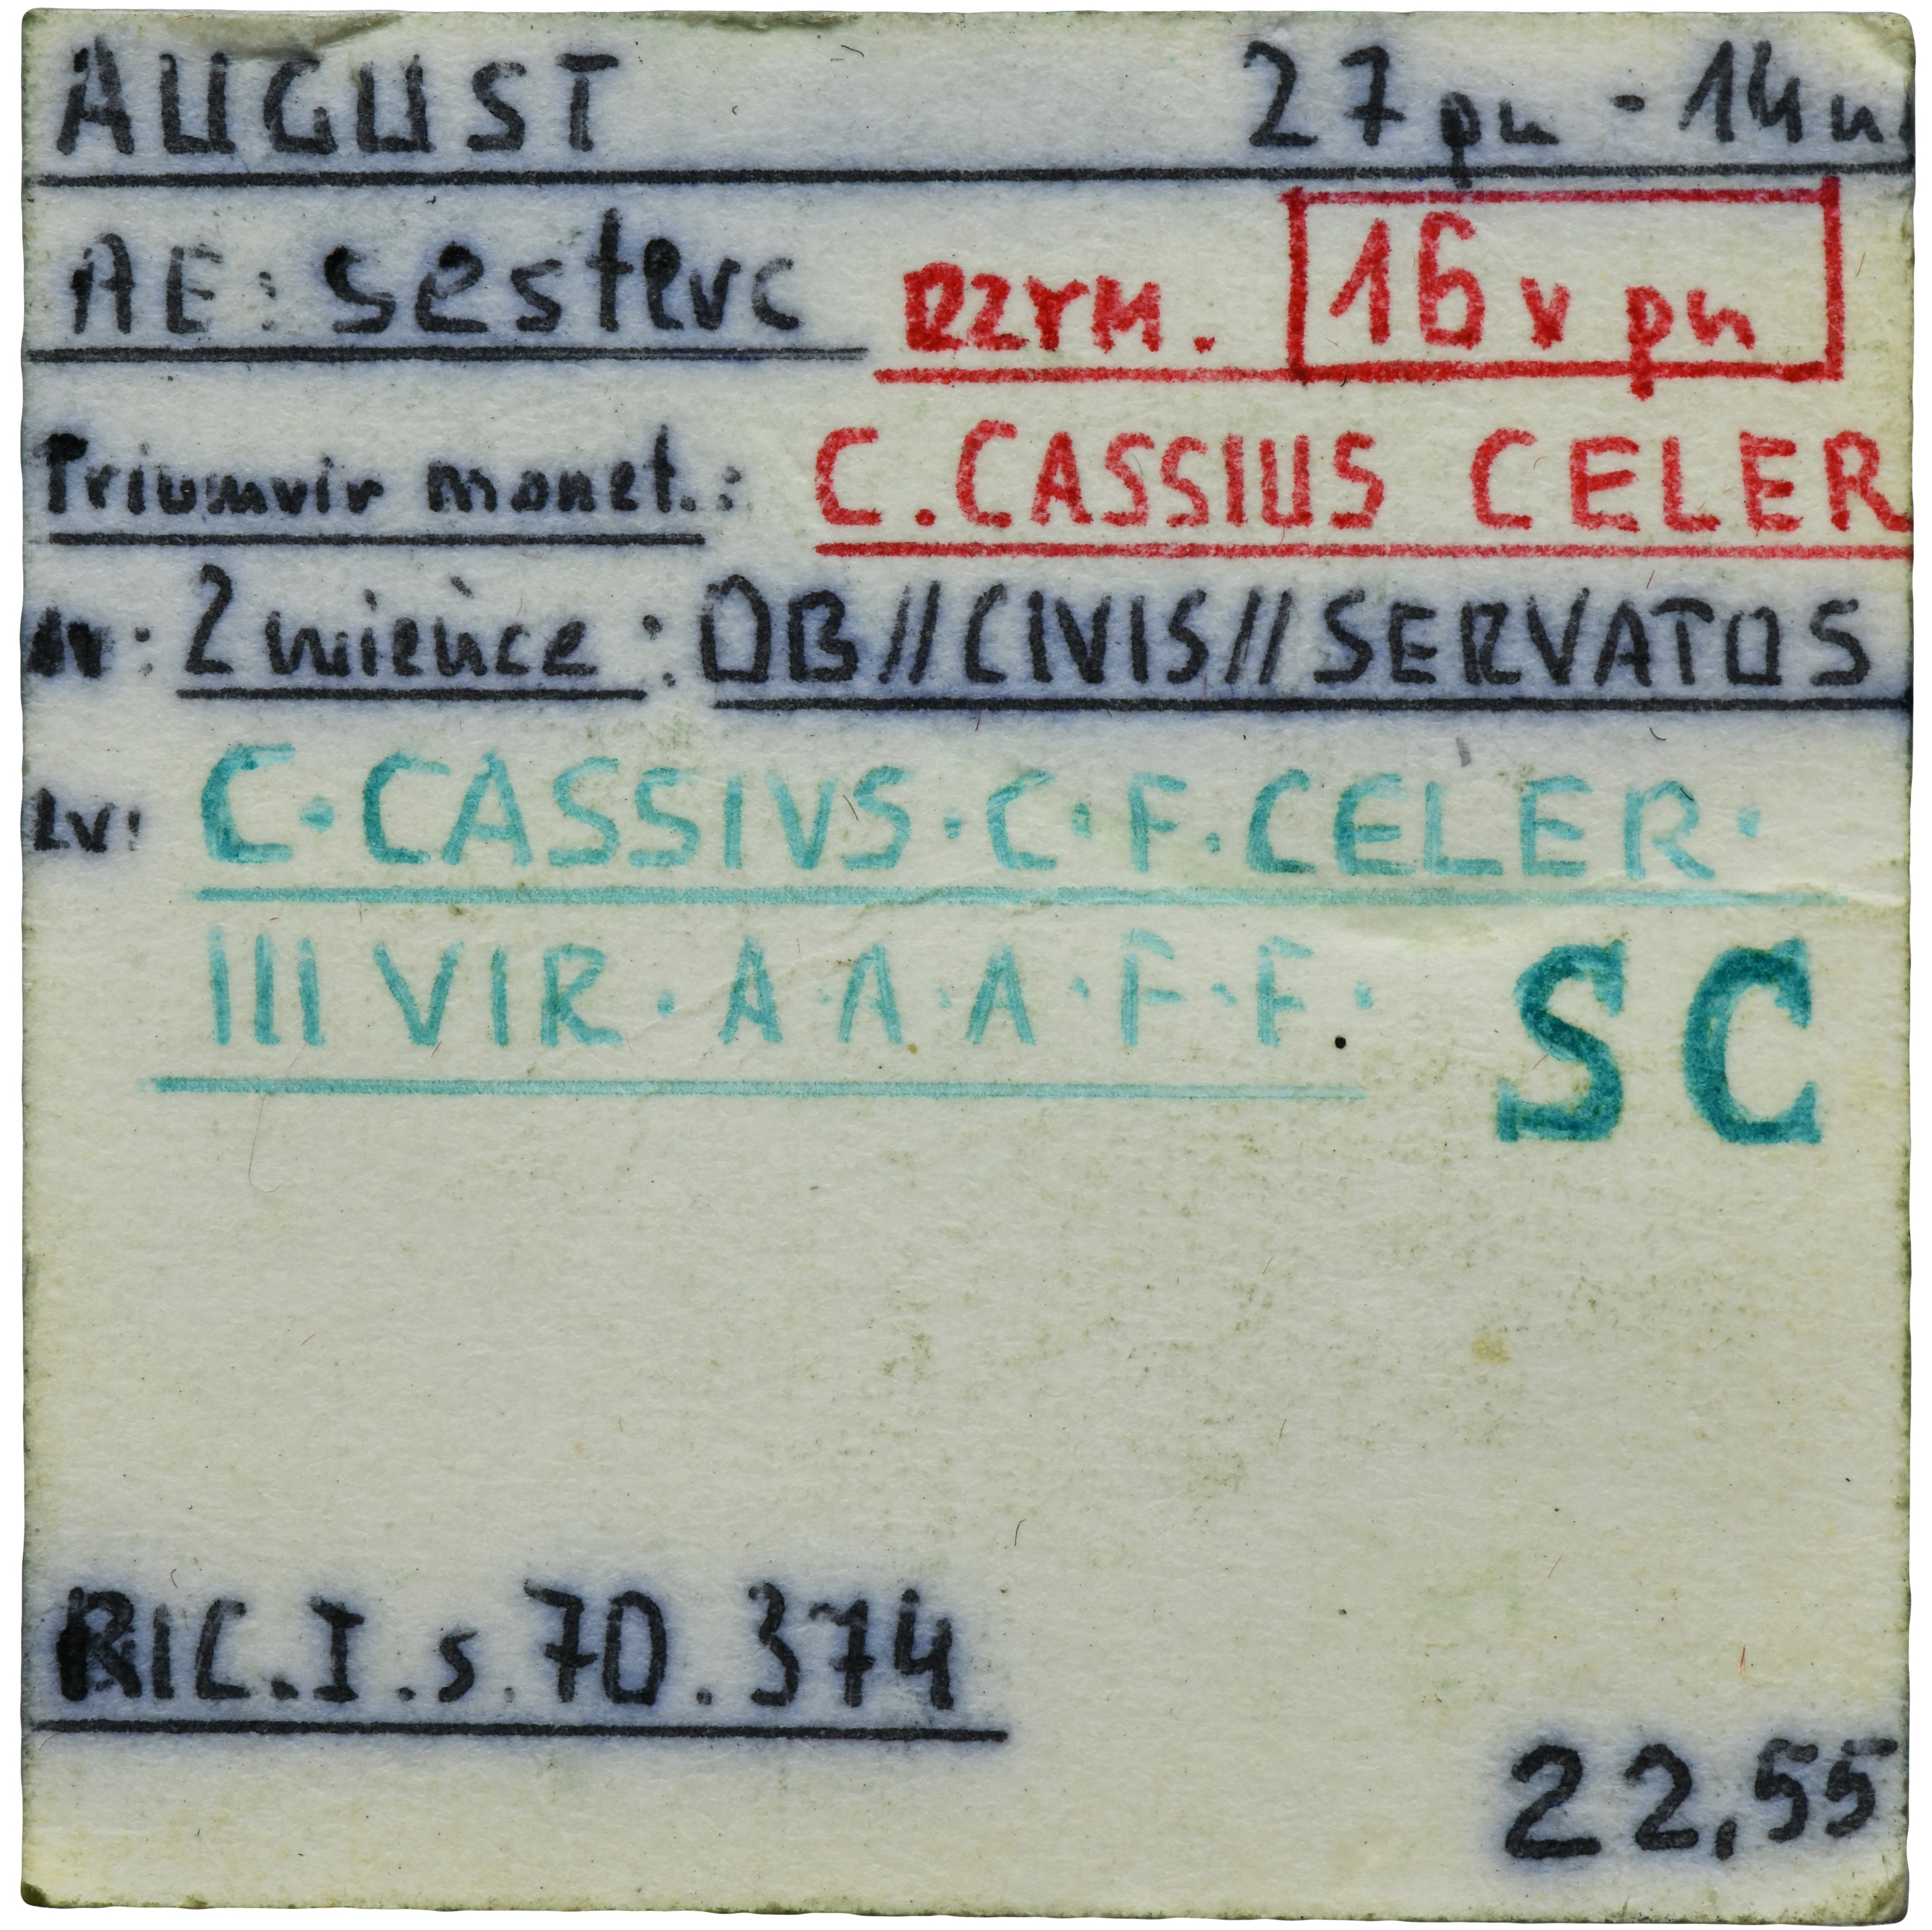 AUGUST 27 pn - 14 n
AE: sesterc RZYM. 16 v pn
Triumvir monet.: C. CASSIUS CELER
Av: 2 wieńce: OB//CIVIS//SERVATOS
Rv: C·CASSIVS·C·F·CELER·
III VIR·A·A·A·F·F· SC
RIC.I.s.70.374
22,55